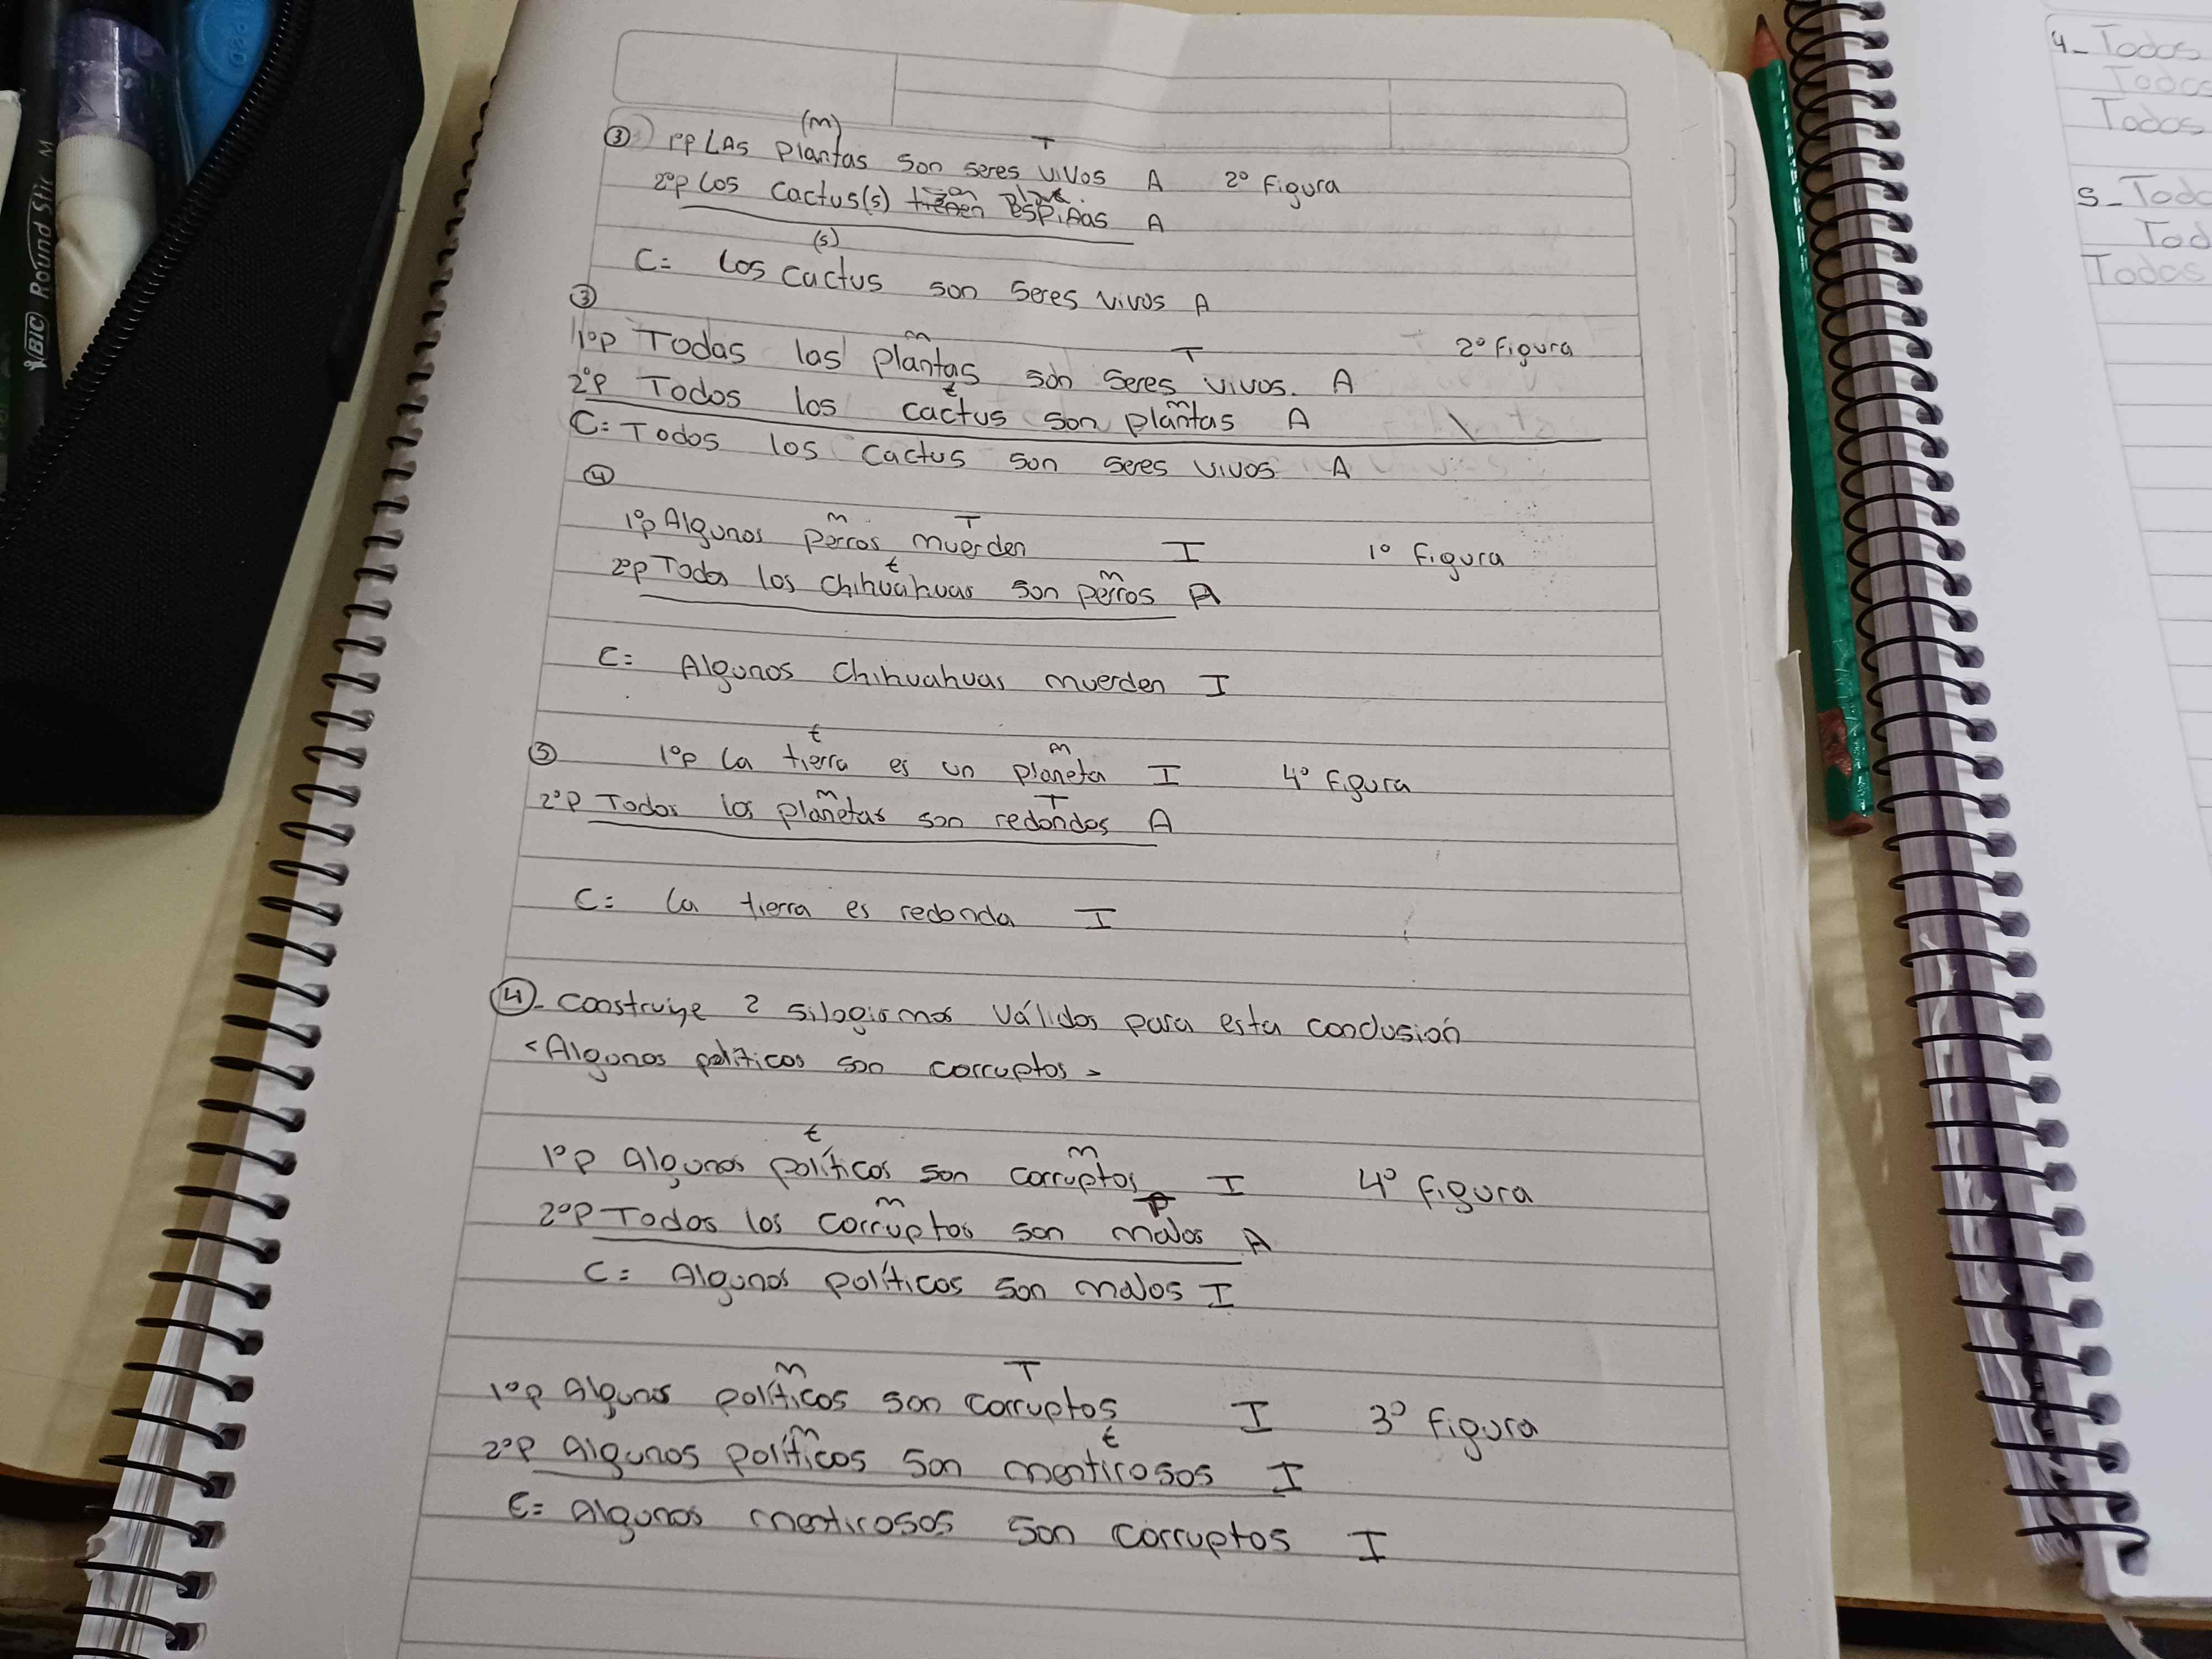 ③ 1ºp LAs plantas son seres vivos A 2º Figura
(m) T
2ºp Los cactus(s) tienen espinas A
son
C= Los cactus son Seres vivos A
(s)
③
1ºp Todas las plantas son seres vivos. A 2º Figura
m T
2ºp Todos los cactus son plantas A
t m
C: Todos los cactus son seres vivos A
④
m T
1ºp Algunos perros muerden I 1º Figura
t m
2ºp Todos los chihuahuas son perros A
C= Algunos Chihuahuas muerden I
t m
⑤ 1ºp La tierra es un planeta I 4º Figura
m T
2ºp Todos los planetas son redondos A
C= La tierra es redonda I
④- Construye 2 silogismos válidos para esta conclusión
<Algunos políticos son corruptos>
t m
1ºp Algunos políticos son corruptos I 4º figura
m P
2ºp Todos los corruptos son malos A
C= Algunos políticos son malos I
m T
1ºp Algunos políticos son corruptos I 3º Figura
m t
2ºp Algunos políticos son mentirosos I
C= Algunos mentirosos son corruptos I
4_ Todos
Todos
5_
Todos
BIC Round Stic M